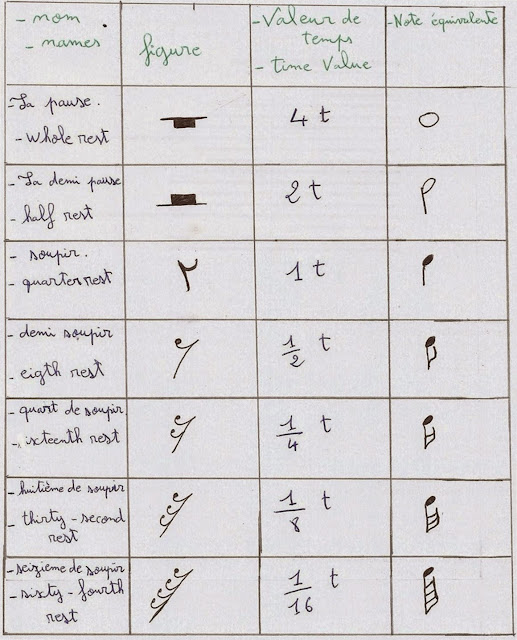 - nom
- names
figure
- Valeur de
temps
- time Value
- Note équivalente
- La pause.
- whole rest
4 t
- La demi pause
- half rest
2 t
- soupir.
- quarter rest
1 t
- demi soupir
- eigth rest
1/2 t
- quart de soupir
- ixteenth rest
1/4 t
- huitième de soupir
- thirty-second
rest
1/8 t
- seizieme de soupir
- sixty-fourth
rest
1/16 t